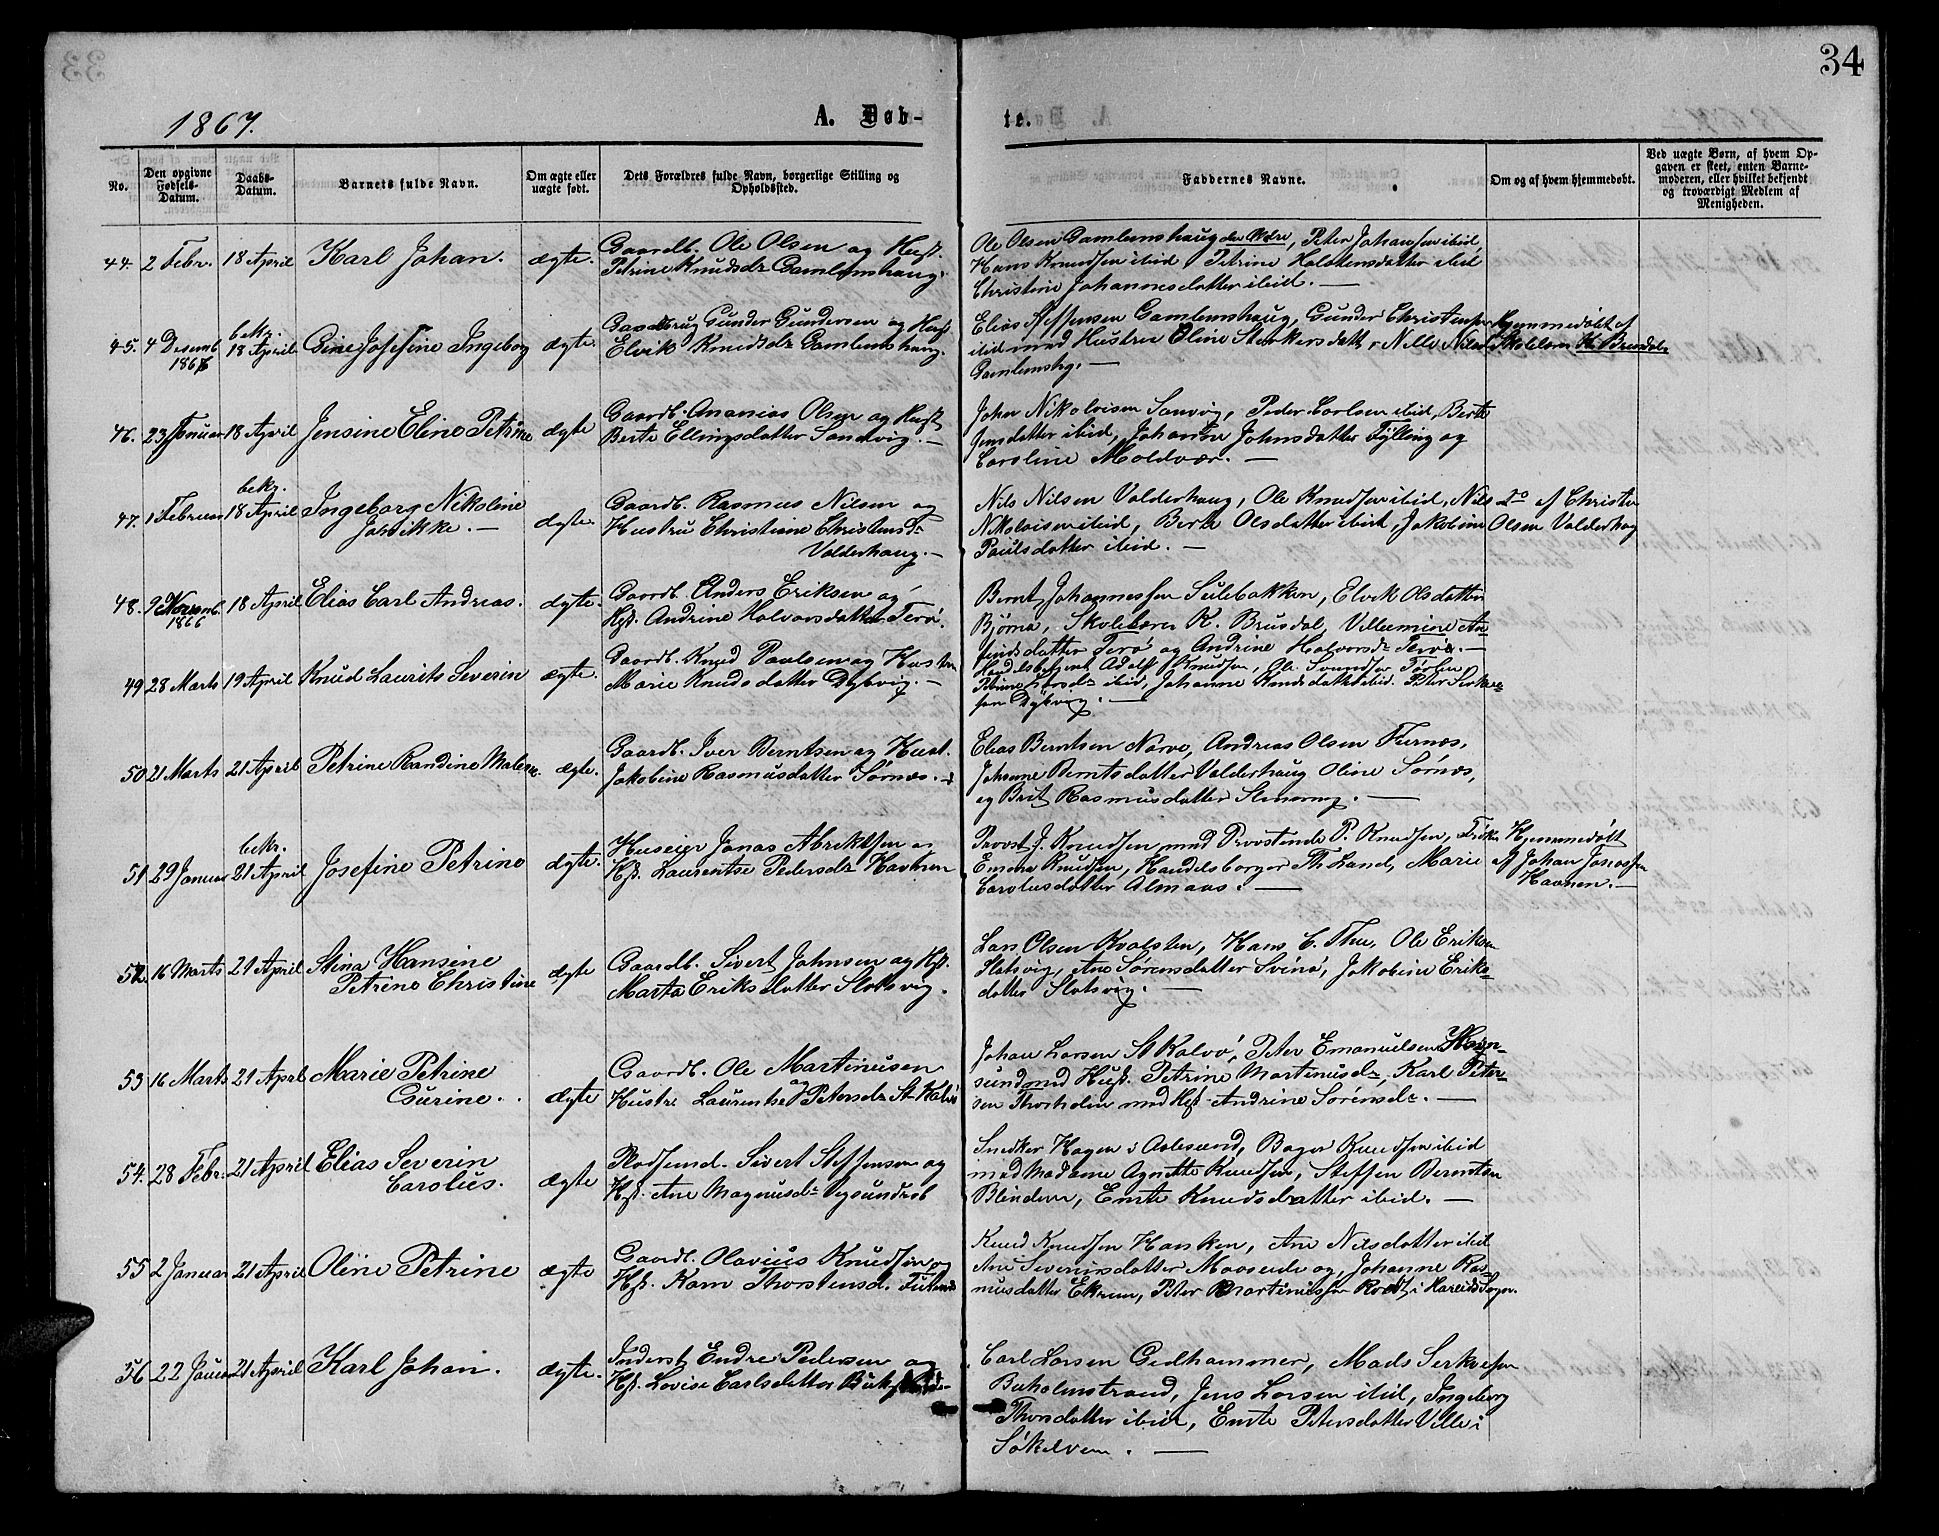 34
1867.
A. Døb-
te.
No.
Den opgivne Fødsels-Datum.
Daabs-Datum.
Barnets fulde Navn.
Om ægte eller uægte født.
Dets Forældres fulde Navn, borgerlige Stilling og Opholdssted.
Faddernes Navne.
Om og af hvem hjemmedøbt.
Ved uægte Børn, af hvem Opgaven er skeet, enten Barnemoderen, eller hvilket bekjendt og troværdigt Medlem af Menigheden.
44. 2 Febr. 18 April Karl Johan. ægte.
Gaardb. Ole Olsen og Hust.
Petrine Knudsdr Gamlemshaug.
Ole Olsen Gamlemshaug den Ældre, Peter Johansen ibid,
Hans Knudsen ibid Petrine Halstensdatter ibid
Christine Johannesdatter ibid. —
45. 4 Desemb. 1866 bekr. 18 April Josefine Ingeborg ægte.
Gunder Gundersen og Hust
Elvik Knudsdr Gamlemshaug.
Elias Steffensen Gamlemshaug, Gunder Christensen
ibid med Hustru Oline Nille
Gamlemshg. —
Hjemmedøbt af
Skolelærer K. Brusdal
46. 23 Januar 18 April Jensine Eline Petrine ægte
Gaardb. Ananias Olsen og Hust
Berte Ellingsdatter Sandvig. —
Johan Nikolaisen Sanvig, Peder Carlsen ibid, Berte
Jensdatter ibid, Johanne Johnsdatter Fylling og
Caroline Moldvær. —
47. 1 Februar bekr. 18 April Ingeborg Nikoline
Janikke. — ægte.
Gaardb. Rasmus Nilsen og
Hustru Christiane Christensdr
Valderhaug. —
Nils Nilsen Valderhaug, Ole Knudsen ibid, Nils
Nikolaisen ibid, Berte Olsdatter ibid, Jakobine
Paulsdatter ibid. —
Do af Christen
Olsen Valderhag
48. 9 Novemb. 1866 18 April Elias Carl Andreas. ægte.
Gaardb. Anders Eriksen og
Hst. Andrine Halvorsdatter Terø.
Bernt Johannessen Sulebakken, Elvik Olsdatter
Bjørnø, Skolelærer K. Brusdal, Villumine
datter Terø og Andrine Halvorsdr Terø. —
49 28 Marts 19 April Knud Laurits Severin ægte.
Gaardb. Knud Paulsen og Hustru
Marie Knudsdatter Dybvig. —
Handelsbetjent Adolf Knudsen, Ole
Petrine ibid, Johanne Knudsdatter ibid. Peter
sen Dybvig. —
50 21 Marts 21 April Petrine Randine Malene ægte.
Gaardb. Iver Berntsen og Hust.
Jakobine Rasmusdatter Sørnæs. —
Elias Berntsen Nørve, Andreas Olsen Furnæs,
Johanne Berntsdatter Valderhaug Oline Sørnæs,
og Brit Rasmusdatter —
51 29 Januar bekr. 21 April Josefine Petrine ægte.
Huseier Jonas
Hst. Laurentse Pedersdr Havnen
Provst J. Knudsen med Provstinde P. Knudsen, Frøken
Emma Knudsen, Handelsborger Th. Land, Marie
Carolusdatter Almaas. —
Hjemmedøbt
af Johan Jonassen
Havnen. —
52. 16 Marts 21 April Stina Hansine
Petrine Christine ægte
Gaardb. Sivert Johnsen og Hst.
Marta Eriksdatter Slotsvig.
Lars Olsen Kvalsten, Hans C. Thue, Ole Eriksen
Slotsvig, Ane Sørensdatter Svinø, Jakobine Eriks-
datter Slotsvig. —
53 16 Marts 21 April Marie Petrine
Gurine. ægte
Gaardb. Ole Martinusen og
Hustru Laurentse Petersdr St Kalvø
Johan Larsen St Kalvø, Peter Emanuelsen
sund med Hust. Petrine Martinusdr, Karl Peter-
sen Thorholm med Hst Andrine Sørensdr. —
54. 28 Febr. 21 April Elias Severin
Carolus. ægte
Sivert Steffensen og
Hst. Ane Magnusdr Vegsundreb
Snedker Hagen i Aalesund, Bager Knudsen ibid
med Madame Agnette Knudsen, Steffen Berntsen
Blindem, Emte Knudsdatter ibid. —
55 2 Januar 21 April Oline Petrine ægte
Gaardb. Olavius Knudsen og
Hst. Karn Thorstensd.
Knud Knudsen Hansken, Ane Nilsdatter ibid
Ane Severinsdatter Maaseide og, Johanne Ras-
musdatter Ekrem, Peter Martinussen i Hareids Sogn.
56 22 Januar 21 April Karl Johan. ægte.
Inderst Endre Pedersen og
Hst. Lovise Carlsdatter
Carl Larsen Gedhammer, Mads
Buholmstrand, Jens Larsen ibid, Ingeborg
Thorsdatter ibid, Emte Petersdatter Ville i
Søkelven. —